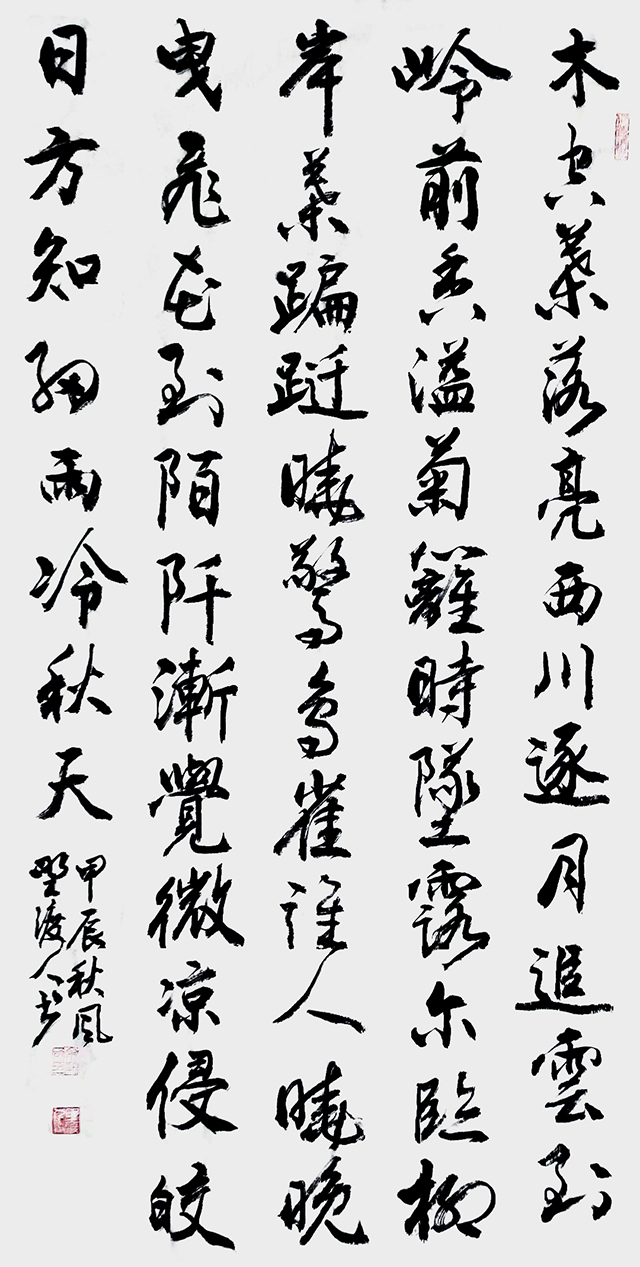 木空葉落亮西川逐月追雲到
岭前香溢菊籬時墜露尔臨柳
岸葉蹁跹曉驚鳥雀誰人曉晚
曳飛花到陌阡漸覺微凉侵皎
日方知細雨冷秋天
甲辰秋風
野渡人书